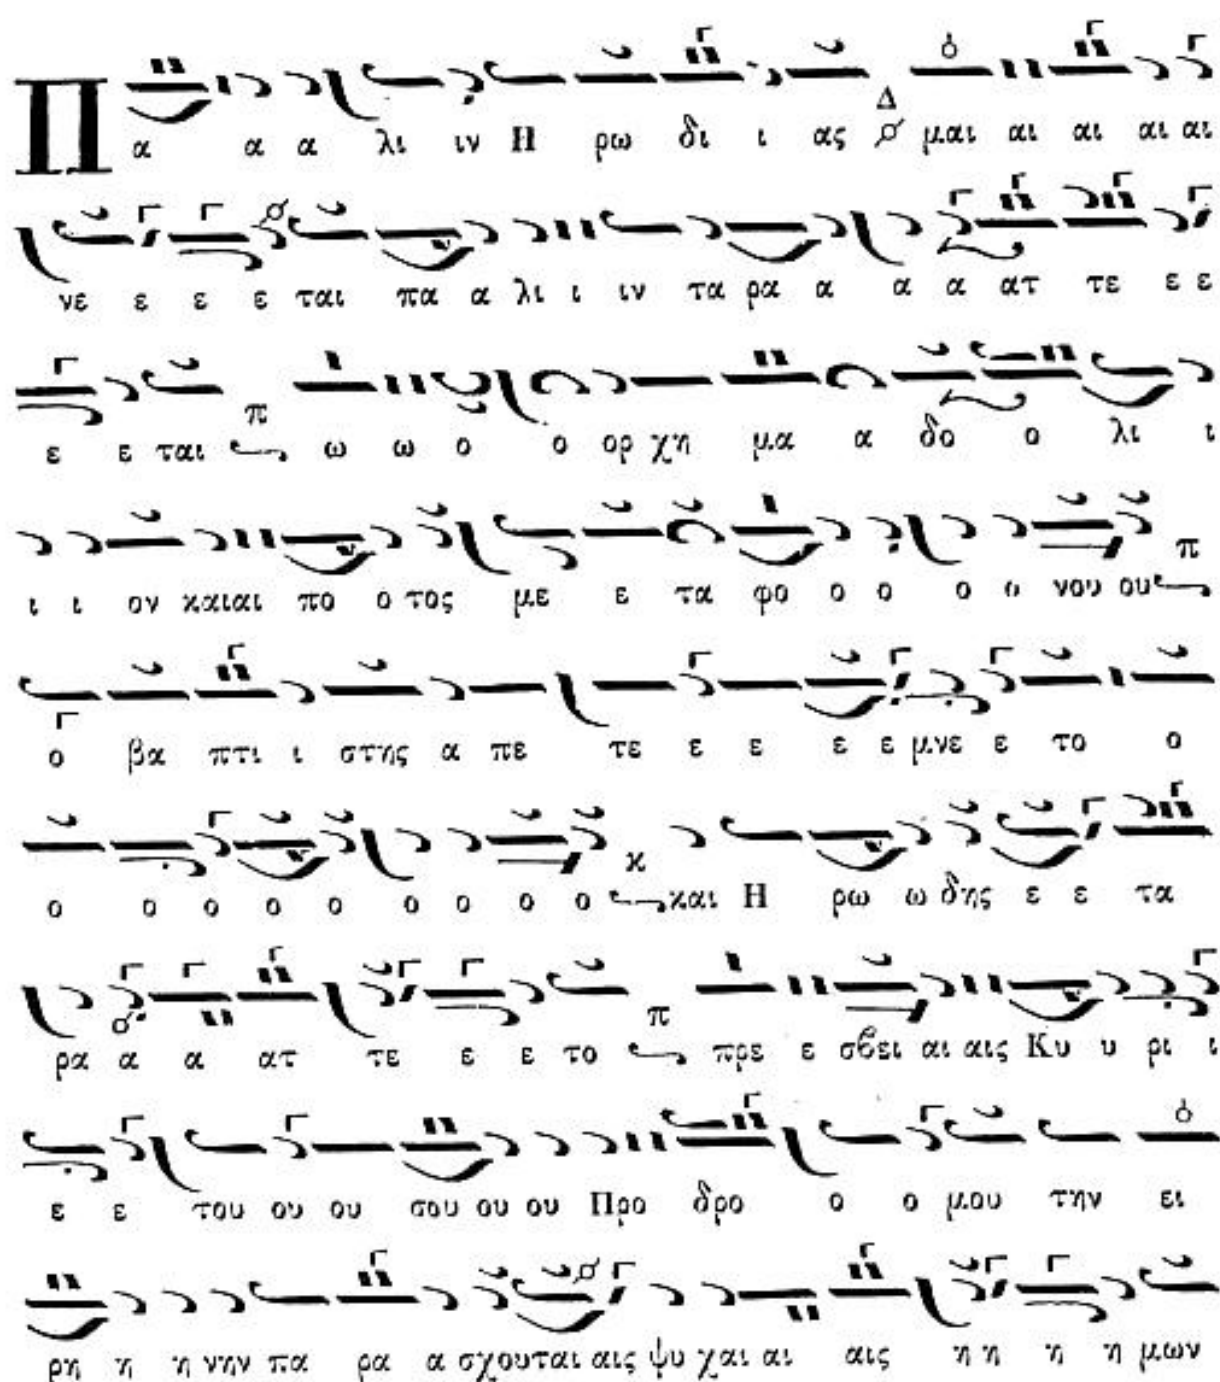 Π α α α λι ιν Η ρω δι ι ας Δ μαι αι αι αι αι
νε ε ε ε ται πα α λι ι ιν τα ρα α α α ατ τε ε ε
ε ε ται π ω ω ο ο ορ χη μα α δο ο λι ι
ι ι ον και αι πο ο τος με ε τα φο ο ο ο ο νου ου π
ο βα πτι ι στης α πε τε ε ε ε ε μνε ε το ο
ο ο ο ο ο ο ο ο ο κ και Η ρω ω δης ε ε τα
ρα α α ατ τε ε ε το π πρε ε σβει αι αις Κυ υ ρι ι
ε ε του ου ου σου ου ου Προ δρο ο ο μου την ει
ρη η η νην πα ρα α σχου ται αις ψυ χαι αι αις η η η η μων